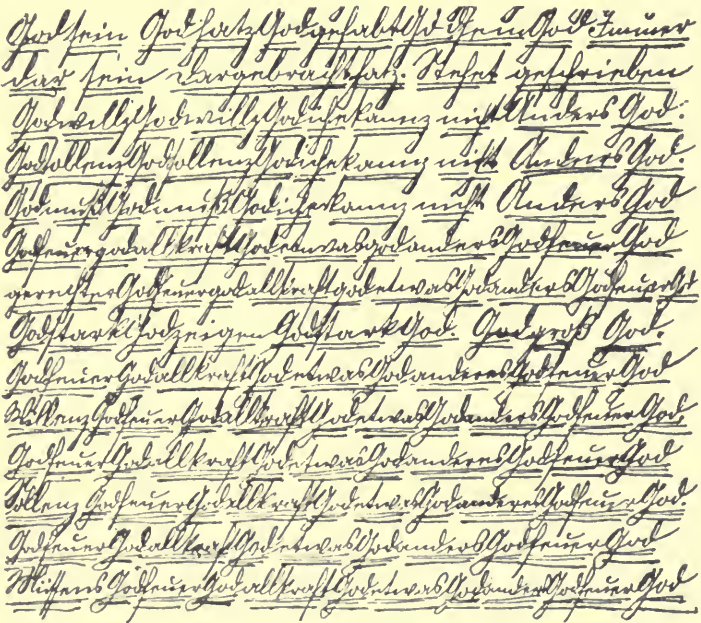 Godsein Godhatz Godgehabt God Immer
dar sein dargebracht hatz. Stehet geschrieben
Godwillz Godwillz Godichekannz nicht Anders God.
Godsollenz Godsollenz Godichekannz nicht Anders God.
Godmußt Godmußt Godichekannz nicht Anders God
Godfeuergodallkraft Godetwasgodanders Godfeuer God
gerechter Godfeuergodallkraftgodetwas Godanders Godfeuer Gd
Godstark Godzeigen Godstark God. God groß God.
Godfeuer Godallkraft Godetwas Godanderes Godfeuer God
Willenz Godfeuer Godallkraft Godetwas Godanders Godfeuer God.
Godfeuer Godallkraft Godetwas Godanderes Godfeuer God
Sollenz Godfeuer Godallkraft Godetwas Godanderes Godfeuer God.
Godfeuer Godallkraft God etwas Godanders Godfeuer God
Müssens Godfeuer Godallkraft Godetwas Godander Godfeuer God